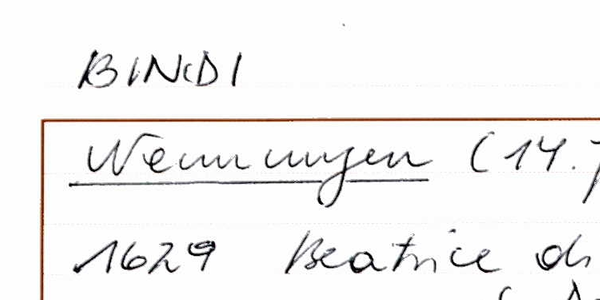 BINDI
Nennungen (14.
1629 Beatrice di